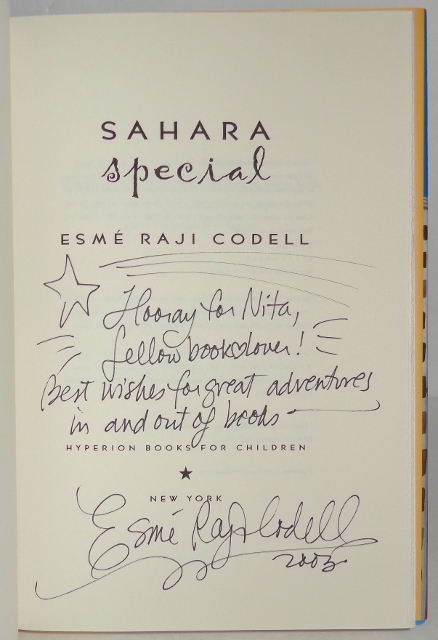 SAHARA
special
ESMÉ RAJI CODELL
Hooray for Nita,
fellow book♡lover!
Best wishes for great adventures
in and out of books
HYPERION BOOKS FOR CHILDREN
NEW YORK
Esmé Raji Codell
2003